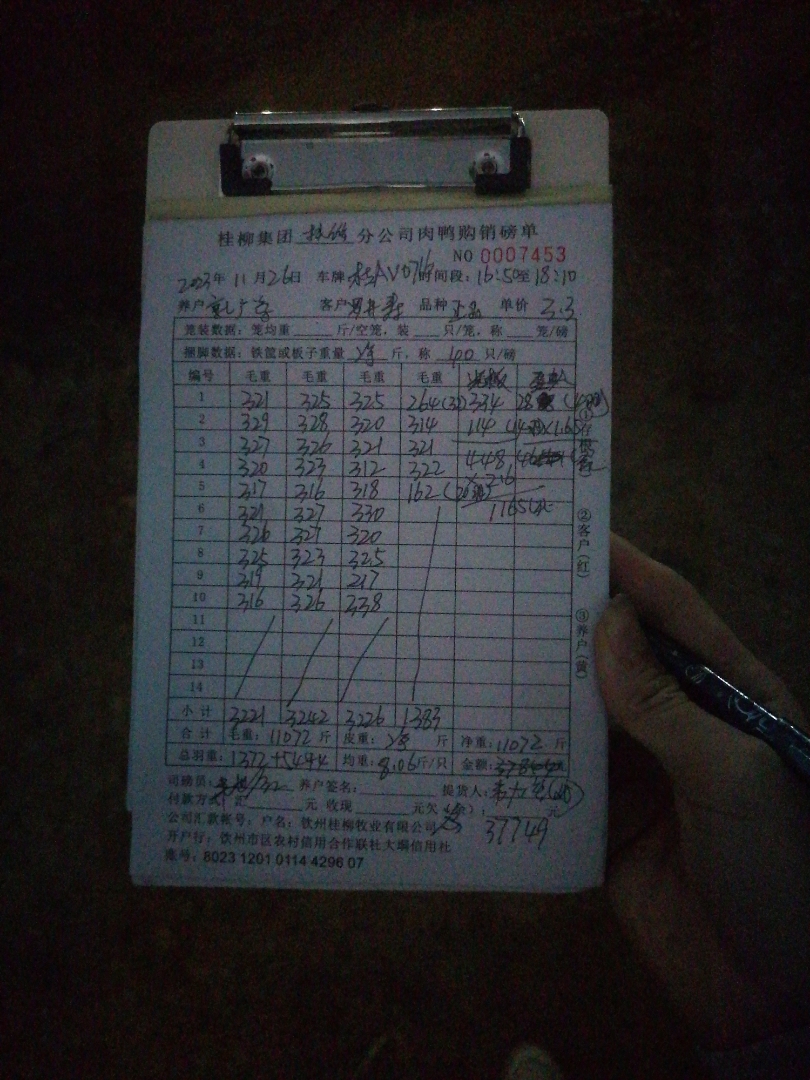 桂柳集团 分公司肉鸭购销磅单
NO 0007453
2023年 11月26日 车牌 桂AV076 时间段: 16:50至18:10
养户 客户 品种 正品 单价 3.3
笼装数据: 笼均重 斤/空笼, 装 只/笼, 称 笼/磅
捆脚数据: 铁筐或板子重量 斤, 称 40 只/磅
编号 毛重 毛重 毛重 毛重
1 321 325 325 264(32) 334 28
2 329 328 320 314 114
3 327 326 321 321
4 320 323 312 322 448
5 317 316 318 162
6 321 327 330
7 326 327 320
8 325 323 325
9 319 321 217
10 316 326 338
11
12
13
14
小计 3221 3242 3226 1383
合计 毛重: 11072 斤 皮重: 斤 净重: 11072 斤
总羽重: 1372 均重: 8.06斤/只 金额: 元
司磅员: 养户签名: 提货人:
付款方式: 汇 元 收现 元欠 元
37749
公司汇款帐号: 户名: 钦州桂柳牧业有限公司
开户行: 钦州市区农村信用合作联社大塘信用社
账号: 8023 1201 0114 4296 07
①存根
②客户(红)
③养户(黄)